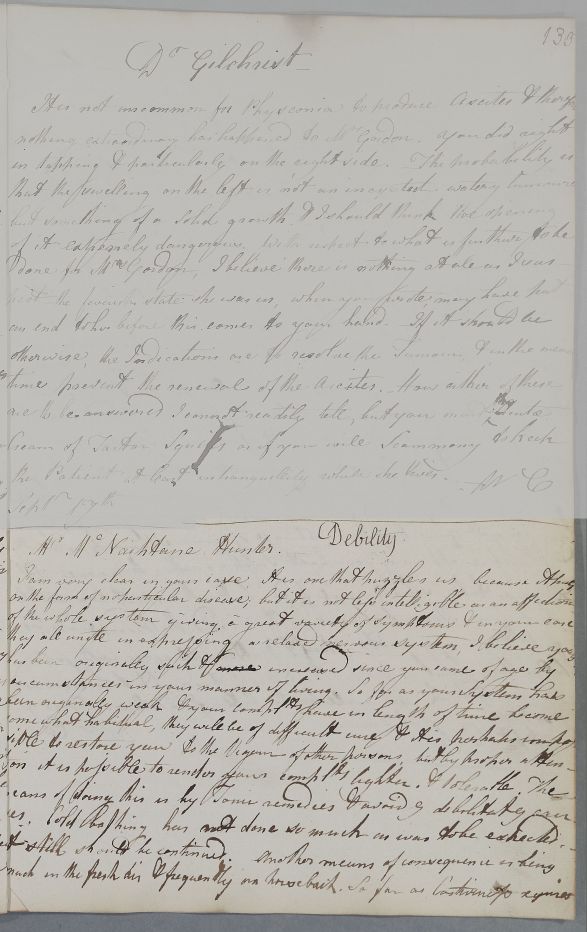 133
Dr Gilchrist
It is not uncommon for Physconia to produce Ascites & therefore
nothing extraordinary has happened to Mrs Gordon. You did right
in tapping & particularly on the right side. The probability is
that the swelling on the left is not an incysted watery tumour
but something of a Solid growth & I should think the opening
of it extremely dangerous. With respect to what is further to be
done for Mrs Gordon, I believe there is nothing at ale as I sus-
pect the state she was in, when you wrote, may have put
an end to her before this comes to your hand. If it should be
otherwise, the Indications are to resolve the Tumour, & in the mean
time prevent the renewal of the Ascites. How either of these
are to be answered I cannot readily tell, but you may
Cream of Tartar Squills or if you will Scammony to keep
the Patient at least in tranquility while she lives. W C
Septr 17th
Debility
Mr Mc Naightane Hunter.
I am very clear in your case. It is one that puzzles us because it puts
on the form of no particular disease; but it is not less intelligible as an affection
of the whole system giving a great variety of Symptoms & in your case
they all unite in expressing a relaxed nervous system, I believe yours
has been originally such & more increased since you came of age by
circumstances in your manner of living. So far as your System has
been originally weak & your complts have in length of time become
somewhat habitual, they will be of difficult cure & it is perhaps impos-
sible to restore you to the Vigour of other persons, but by proper atten-
on it is possible to render your complts lighter & tolerable. The
means of doing this is by Tonic remedies & avoidg debilitatg cau
es. Cold Bathing has not done so much as was to be expected.
it still should be continued. Another means of consequence is being
much in the fresh air & frequently on horseback. So far as Costiveness requires